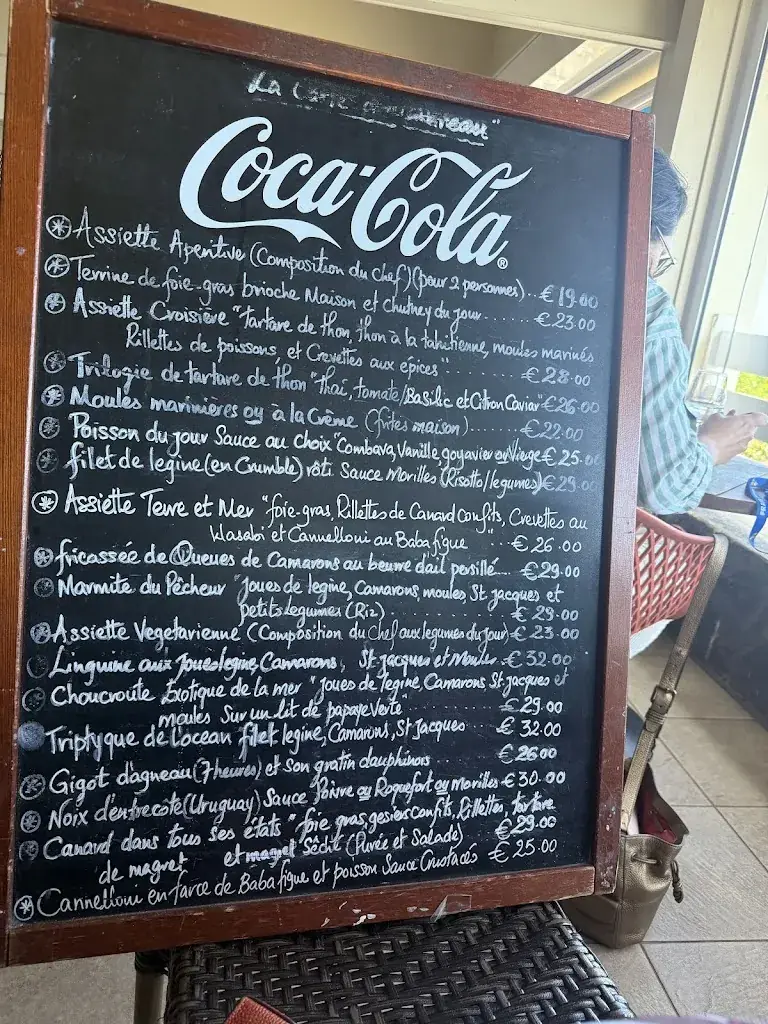 La
Coca-Cola®
Assiette Aperitive (Composition du Chef) (pour 2 personnes).. €19.00
Terrine de foie-gras brioche Maison et Chutney du jour...... €23.00
Assiette Croisière "tartare de thon, thon à la tahitienne, moules marinés
Rillettes de poissons, et Crevettes aux épices"...... €28.00
Trilogie de tartare de thon "thaï, tomate/Basilic et Citron Caviar" €26.00
Moules marinières ou à la Crème (frites maison)...... €22.00
Poisson du jour Sauce au choix "Combava, Vanille, goyavier ou Vierge €25.00
filet de legine (en Crumble) rôti Sauce Morilles (Risotto/legumes) €29.00
Assiette Terre et Mer "foie-gras, Rillettes de Canard confits, Crevettes au
Wasabi et Cannelloni au Baba figue "... €26.00
fricassée de Queues de Camarons au beurre d'ail persillé... €29.00
Marmite du Pêcheur "Joues de legine, Camarons, moules, St. jacques et
petits legumes (Riz)...... € 29.00
Assiette Vegetarienne (Composition du Chef aux legumes du jour) € 23.00
Linguine aux joues legine, Camarons, St jacques et Moules € 32.00
Choucroute Exotique de la mer "Joues de legine, Camarons, St. jacques et
moules Sur un lit de papaye Verte"...... €29.00
Triptyque de L'ocean filet legine, Camarons, St Jacques € 32.00
Gigot d'agneau (7 heures) et Son gratin dauphinois...... €26.00
Noix d'entrecote (Uruguay) Sauce Poivre ou Roquefort ou morilles € 30.00
Canard dans tous ses états "foie gras, gesiers confits, Rillettes, tartare
de magret et magret Séché (Purée et Salade) €29.00
Cannelloni en farce de Baba figue et poisson Sauce Crustacés € 25.00